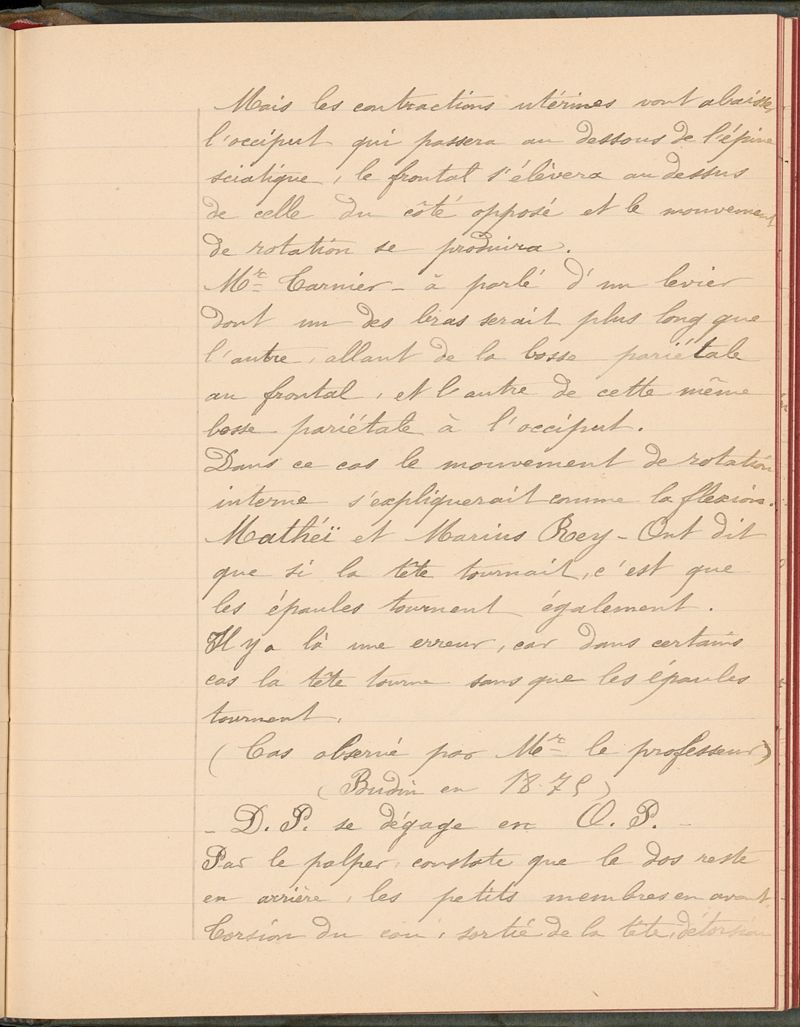 Mais les contractions utérines vont abaisser
l'occiput qui passera au dessous de l'épine
sciatique, le frontal s'élèvera au dessus
de celle du côté opposé et le mouvement
de rotation se produira.
Mr Tarnier - à parlé d'un levier
dont un des bras serait plus long que
l'autre, allant de la bosse pariétale
au frontal, et l'autre de cette même
bosse pariétale à l'occiput.
Dans ce cas le mouvement de rotation
interne s'expliquerait comme la flexion.
Mathéï et Marius Rey - Ont dit
que si la tête tournait, c'est que
les épaules tournent également.
Il y a là une erreur, car dans certains
cas la tête tourne sans que les épaules
tournent.
(Cas observé par Mr le professeur)
(Budin en 1875)
- D. P. se dégage en O. P. -
Par le palper, constate que le dos reste
en arrière, les petits membres en avant.
Torsion du cou, sortié de la tête, détorsion